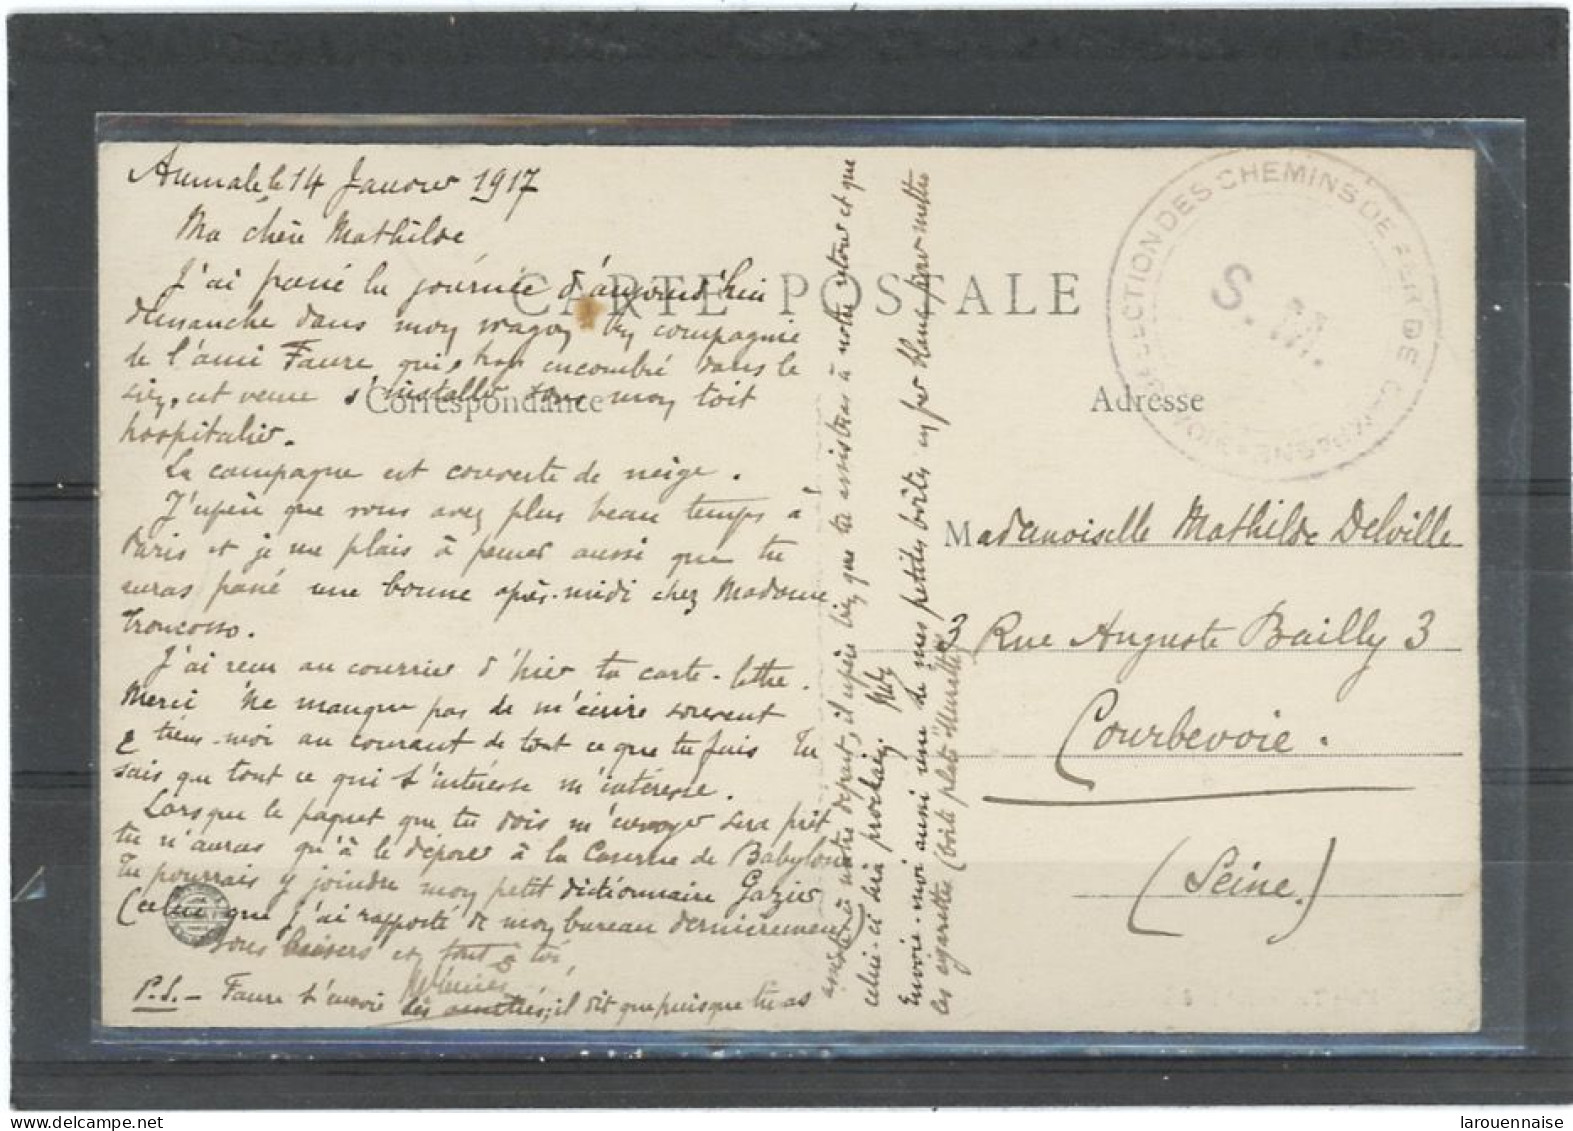 Aumale le 14 Janvier 1917
Ma chère Mathilde
J'ai passé la journée d'aujourd'hui
dimanche dans mon wagon en compagnie
de l'ami Faure qui, trop encombré dans le
sien, est venu s'installer sous mon toit
hospitalier.
La campagne est couverte de neige.
J'espère que vous avez plus beau temps à
Paris et je me plais à penser aussi que tu
auras passé une bonne après-midi chez Madame
Troncosso.
J'ai reçu au courrier d'hier ta carte-lettre.
Merci Ne manque pas de m'écrire souvent
& tiens-moi au courant de tout ce que tu fais Tu
sais que tout ce qui t'intéresse m'intéresse.
Lorsque le paquet que tu dois m'envoyer sera prêt
tu n'auras qu'à le déposer à la Caserne de Babylone
Tu pourrais y joindre mon petit dictionnaire Gazier
(celui que j'ai rapporté de mon bureau dernièrement)
Bons baisers et tout à toi,
P.S.- Faure t'envoie ses amitiés; il dit que puisque tu as
assisté à notre départ, il espère bien que tu assistras à notre retour et que
celui-ci sera prochain.
Envoie-moi aussi une de mes petites boîtes en fer blanc pour mettre
les cigarettes (boîte plate "Muratti")
CARTE POSTALE
Correspondance
Adresse
DIRECTION DES CHEMINS DE FER DE CAMPAGNE
S. M.
Mademoiselle Mathilde Delville
3 Rue Auguste Bailly 3
Courbevoie.
(Seine.)
delcampe.net
larouennaise